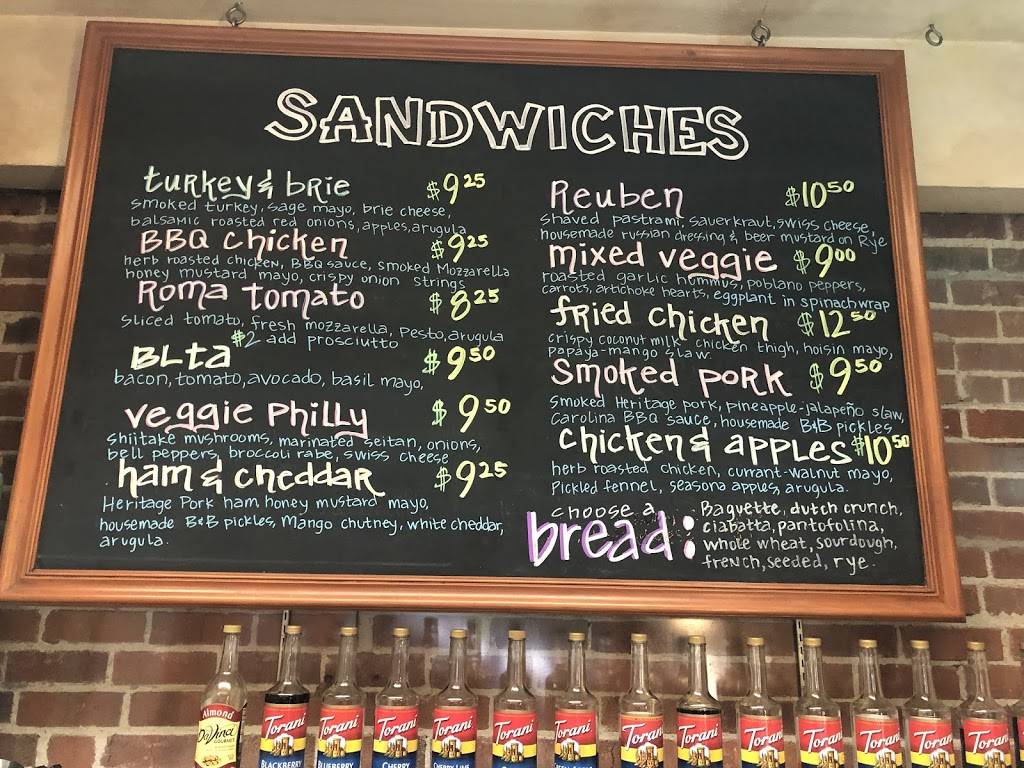 SANDWICHES
turkey & brie $9 25
smoked turkey, sage mayo, brie cheese,
balsamic roasted red onions, apples, arugula
BBQ chicken $9 25
herb roasted chicken, BBQ sauce, smoked Mozzarella
honey mustard mayo, crispy onion strings
Roma tomato $8 25
sliced tomato, fresh mozzarella, pesto, arugula
$2 add prosciutto
BLta $9 50
bacon, tomato, avocado, basil mayo,
veggie Philly $9 50
Shiitake mushrooms, marinated seitan, onions,
bell peppers, broccoli rabe, swiss cheese
ham & cheddar $9 25
Heritage Pork ham honey mustard mayo,
housemade B&B pickles, Mango chutney, white cheddar,
arugula.
Reuben $10 50
shaved pastrami, sauerkraut, swiss cheese,
housemade russian dressing & beer mustard on Rye
mixed veggie $9 00
roasted garlic hummus, poblano peppers,
carrots, artichoke hearts, eggplant in spinach wrap
fried chicken $12 50
crispy coconut milk chicken thigh, hoisin mayo,
papaya-mango slaw.
smoked pork $9 50
Smoked Heritage pork, pineapple-jalapeño slaw,
Carolina BBQ sauce, housemade B&B pickles
chicken & apples $10 50
herb roasted chicken, currant-walnut mayo,
Pickled fennel, seasona apples, arugula.
choose a
bread:
Baguette, dutch crunch,
ciabatta, pantofolina,
whole wheat, sourdough,
french, seeded, rye.
Almond
DaVinci
GOURMET
Torani
BLACKBERRY
Torani
BLUEBERRY
Torani
CHERRY
Torani
CHERRY LIME
Torani
Torani
Torani
Torani
Torani
Torani
Torani
Torani
Torani